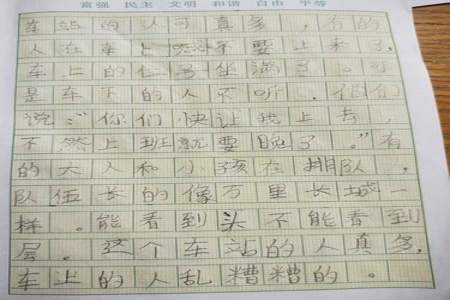 富强 民主 文明 和谐 自由 平等
车站的人可真多，有的
人在车上 不要上来了，
车上的 坐满了。可
是车下的人不听，他们
说：“你们快让我上去，
不然上班就要晚了。”有
的大人和小孩在排队，
队伍长的像万里长城一
样。能看到头不能看到
层。这个车站的人真多，
车上的人乱糟糟的。